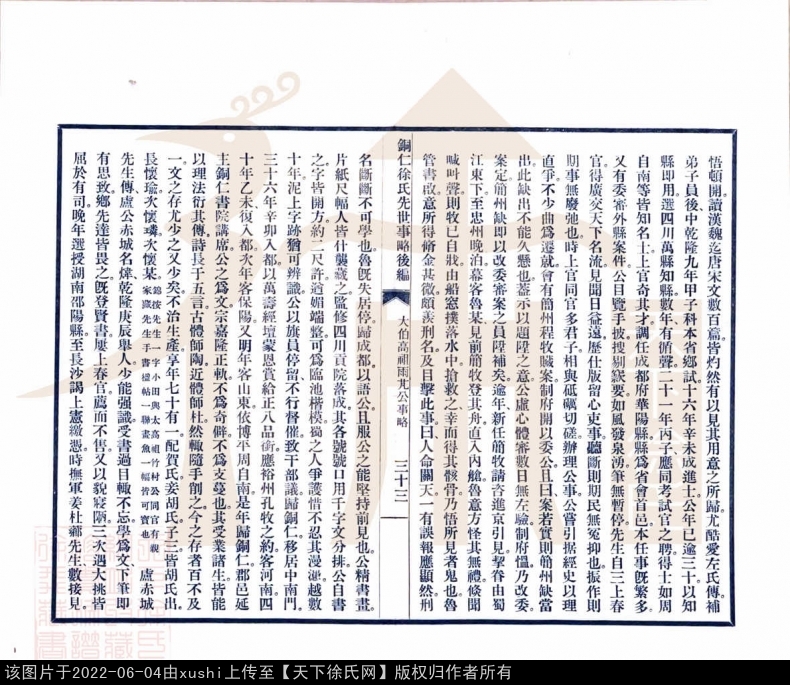 悟頓開讀漢魏迄唐宋文數百篇皆灼然有以見其用意之所歸尤酷愛左氏傳補
弟子員後中乾隆九年甲子科本省鄉試十六年辛未成進士公年已逾三十以知
縣即用選四川萬縣知縣數年有循聲二十一年丙子應同考試官之聘得士如周
自南等皆知名士上官奇其才調任成都府華陽縣縣爲省會首邑本任事旣繁多
又有委審外縣案件公目覽手披搜剔窾要如風發泉湧筆無暫停先生自三上春
官得廣交天下名流見聞日益遠歷仕版留心吏事聽斷則期民無冤抑也振作則
期事無廢弛也時上官同官多君子相與砥礪切磋辦理公事公嘗引据經史以理
直爭不少曲爲遷就會有簡州程牧贓案制府開以委公且曰案若實則簡州缺當
出此缺出不能久懸也蓋示以題陞之意公虛心體審數日無左驗制府慍乃改委
案定簡州缺即以改委審案之員陞補矣逾年新任簡牧請咨進京引見挈眷由蜀
江東下至忠州晚泊幕客魯某見前簡牧登其舟直入內艙魯意方怪其無禮倐聞
喊叫聲則牧已自戕由船窗撲落水中搶救之幸而得其骸骨乃悟所見者鬼也魯
管書啟意所得脩金甚微頗羨刑名及目擊此事曰人命關天一有誤報應顯然刑
銅仁徐氏先世事略後編
大伯高祖雨亣公事略
三十三
名斷斷不可學也魯旣失居停歸成都以語公且服公之能堅持前見也公精書畫
片紙尺幅人皆什襲藏之監修四川貢院落成其各號號口用千字文分排公自書
之字皆開方約二尺許遒媚端整可爲臨池楷模蜀之人爭護惜不忍其漫漶越數
十年泥上字跡猶可辨識公以旗員停留不行督催致干部議歸銅仁移居中南門
三十六年辛卯入都以萬壽經壇蒙恩賞給正八品銜應裕州孔牧之約客河南四
十年乙未復入都次年客保陽又明年客山東依博平周自南是年歸銅仁郡邑延
主銅仁書院講席公之爲文宗嘉隆正軌不爲奇僻不爲支蔓也其受業諸生皆能
以理法衍其傳詩長于五言古體師陶近體師杜然輒隨手削之今之存者百不及
一文之存尤少之又少矣不治生產享年七十有一配賀氏妾胡氏子三皆胡氏出
長懷瑜次懷璘次懷某 家藏先生手書楹帖一聯畫魚一幅皆可寶也
盧赤城
先生傳盧公赤城名煒乾隆庚辰舉人少能強識受書過目輒不忘學爲文下筆即
有思致鄉先達皆畏之旣登賢書屢上春官薦而不售又以貌寢陋三次遇大挑皆
屬於有司晚年選授湖南邵陽縣至長沙謁上憲繳憑時撫軍姜杜薌先生數接見
该图片于2022-06-04由xushi上传至【天下徐氏网】版权归作者所有